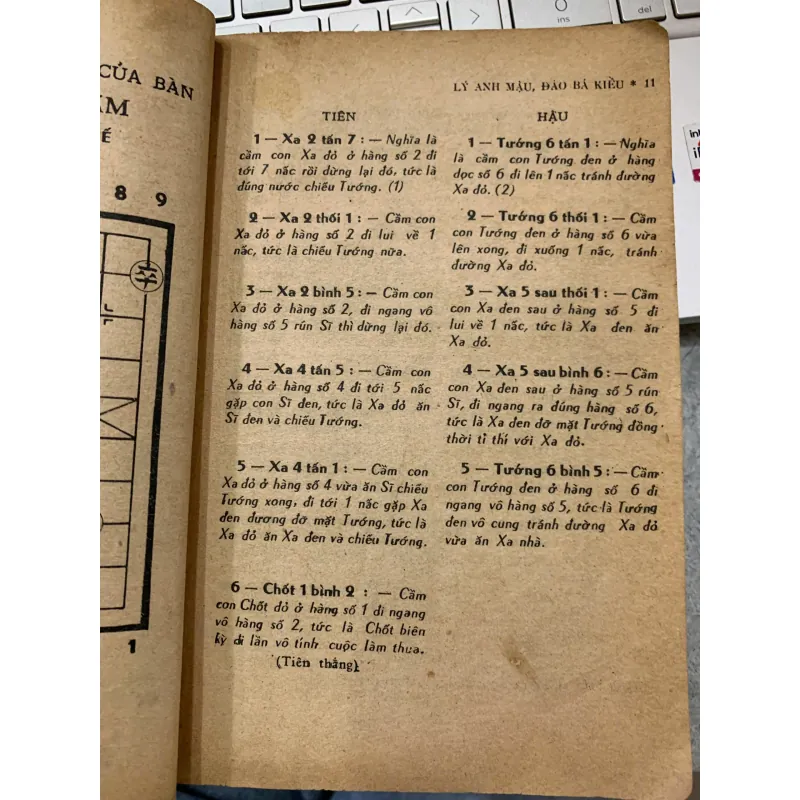 CỦA BÀN
8 9
1
LÝ ANH MẬU, ĐÀO BÁ KIỀU * 11
TIÊN
1 — Xa 2 tấn 7 : — Nghĩa là
cầm con Xa đỏ ở hàng số 2 đi
tới 7 nấc rồi dừng lại đó, tức là
đúng nước chiếu Tướng. (1)
2 — Xa 2 thối 1 : — Cầm con
Xa đỏ ở hàng số 2 đi lui về 1
nấc, tức là chiếu Tướng nữa.
3 — Xa 2 bình 5 : — Cầm con
Xa đỏ ở hàng số 2, đi ngang vô
hàng số 5 rún Sĩ thì dừng lại đó.
4 — Xa 4 tấn 5 : — Cầm con
Xa đỏ ở hàng số 4 đi tới 5 nấc
gặp con Sĩ đen, tức là Xa đỏ ăn
Sĩ đen và chiếu Tướng.
5 — Xa 4 tấn 1 : — Cầm con
Xa đỏ ở hàng số 4 vừa ăn Sĩ chiếu
Tướng xong, đi tới 1 nấc gặp Xa
đen đương đỡ mặt Tướng, tức là
Xa đỏ ăn Xa đen và chiếu Tướng.
6 — Chốt 1 bình 2 : — Cầm
con Chốt đỏ ở hàng số 1 đi ngang
vô hàng số 2, tức là Chốt biên
kỳ đi lần vô tính cuộc làm thua.
(Tiên thắng).
HẬU
1 — Tướng 6 tấn 1 : — Nghĩa
là cầm con Tướng đen ở hàng
dọc số 6 đi lên 1 nấc tránh đường
Xa đỏ. (2)
2 — Tướng 6 thối 1 : — Cầm
con Tướng đen ở hàng số 6 vừa
lên xong, đi xuống 1 nấc, tránh
đường Xa đỏ.
3 — Xa 5 sau thối 1 : — Cầm
con Xa đen sau ở hàng số 5 đi
lui về 1 nấc, tức là Xa đen ăn
Xa đỏ.
4 — Xa 5 sau bình 6 : — Cầm
con Xa đen sau ở hàng số 5 rún
Sĩ, đi ngang ra đúng hàng số 6,
tức là Xa đen đỡ mặt Tướng đồng
thời tỉ thí với Xa đỏ.
5 — Tướng 6 bình 5 : — Cầm
con Tướng đen ở hàng số 6 đi
ngang vô hàng số 5, tức là Tướng
đen vô cung tránh đường Xa đỏ
vừa ăn Xa nhà.
ins